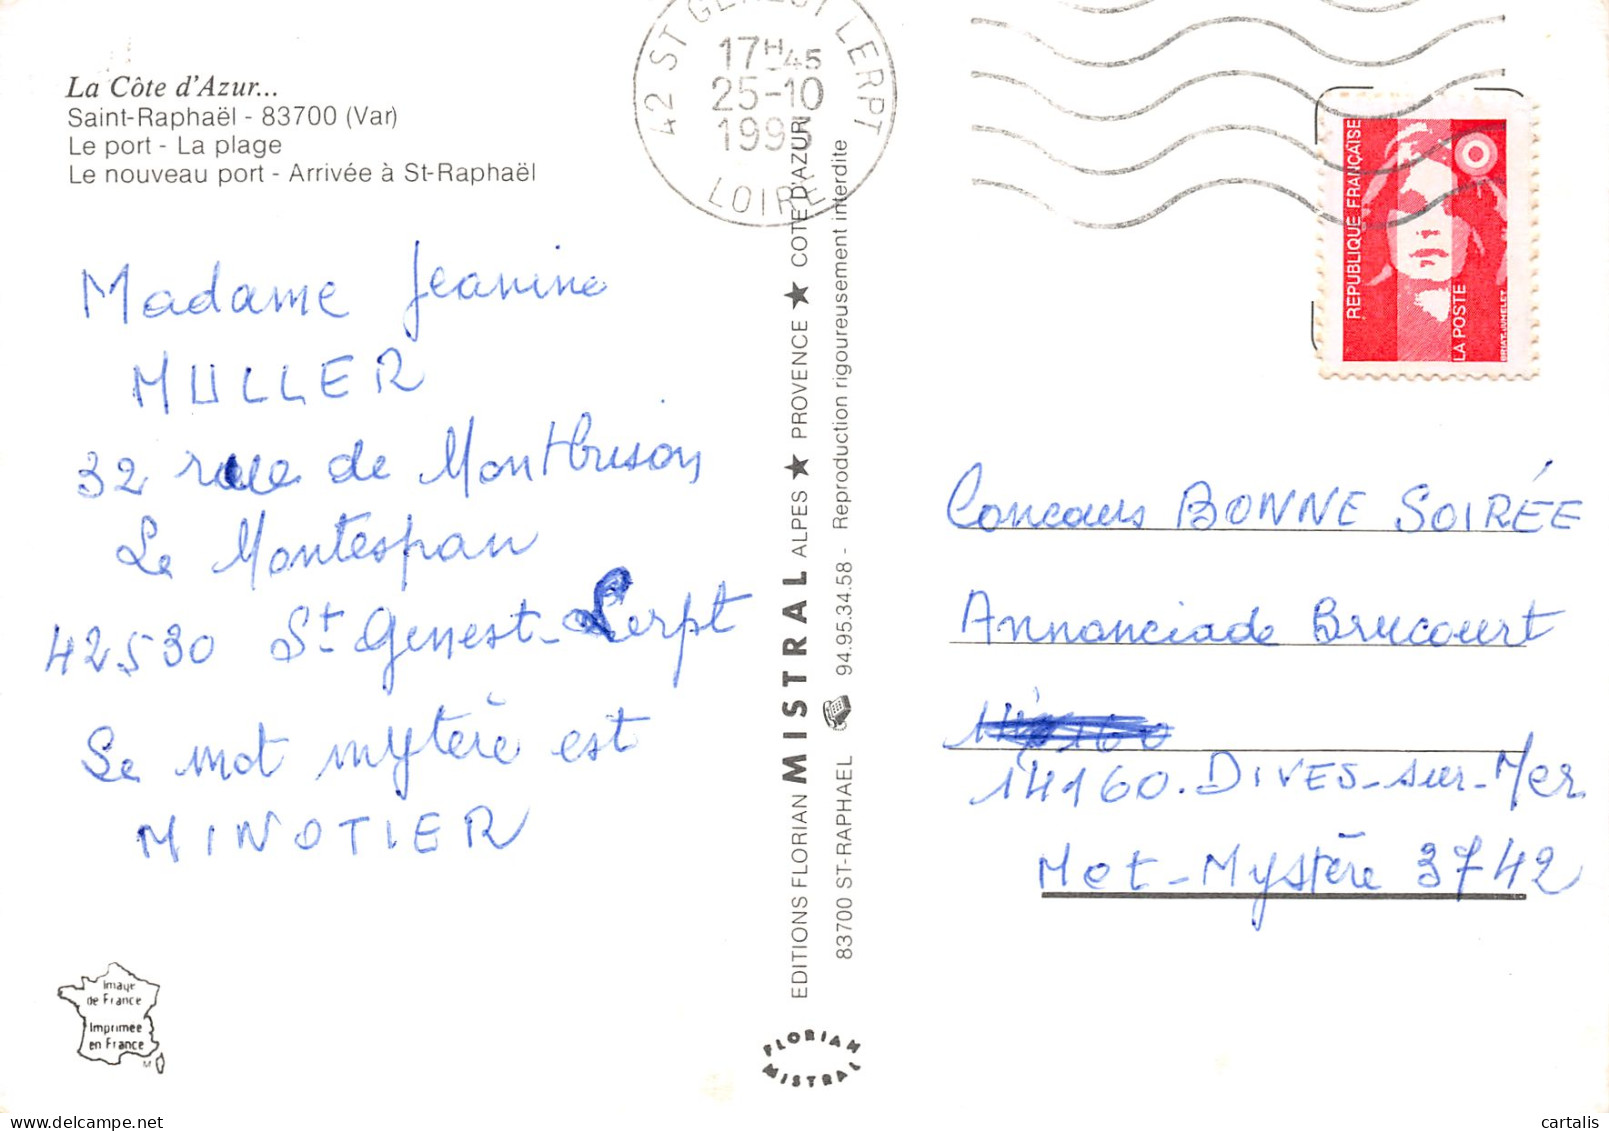 La Côte d'Azur...
Saint-Raphaël - 83700 (Var)
Le port - La plage
Le nouveau port - Arrivée à St-Raphaël
Madame Jeanine
MULLER
32 rue de Montbrison
Le Montespan
42530 St Genest-Lerpt
Le mot mystère est
MINOTIER
Image
de France
Imprimée
en France
42 ST GENEST LERPT
17H45
25-10
LOIRE
EDITIONS FLORIAN MISTRAL ALPES ★ PROVENCE ★ COTE D'AZUR
83700 ST-RAPHAEL 94.95.34.58 - Reproduction rigoureusement interdite
FLORIAN
MISTRAL
REPUBLIQUE FRANÇAISE
LA POSTE
BRIAT-JUMELET
Concours BONNE SOIRÉE
Annonciade Brucourt
14160. DIVES-sur-Mer
Mot-Mystère 3742
cartalis